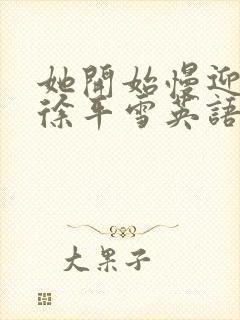 她開始慢迎
徐平雪英語
大果子